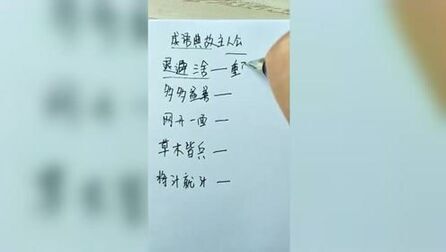 成语典故主人公
退避三舍—重
多多益善—
网开一面—
草木皆兵—
将计就计—